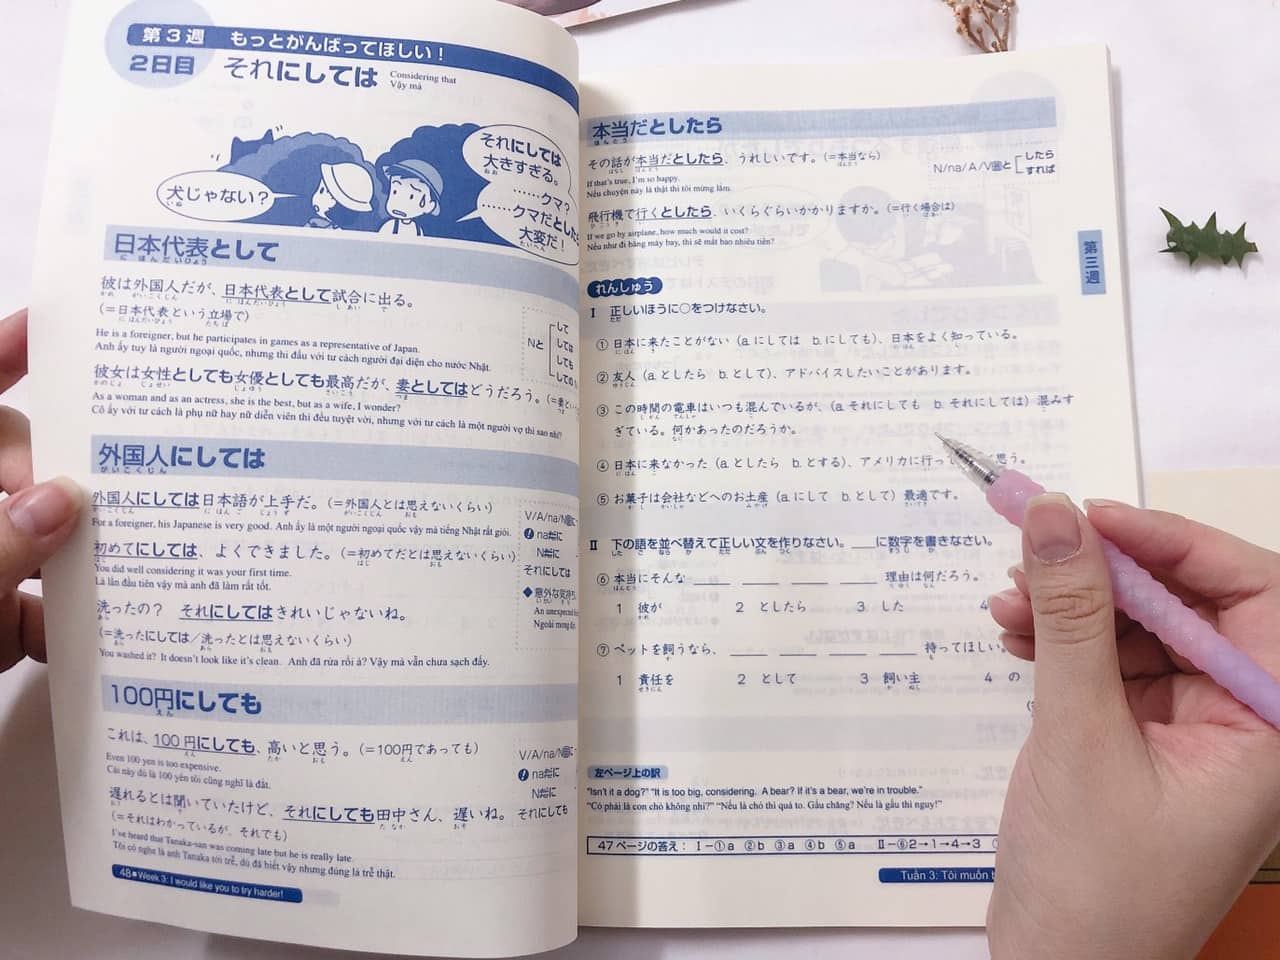 第3週 もっとがんばってほしい！
2日目 それにしては Considering that
Vậy mà
それにしては
大きすぎる。
……クマ？
……クマだとしたら
大変だ！
犬じゃない？
日本代表として
彼は外国人だが、日本代表として試合に出る。
(＝日本代表という立場で)
He is a foreigner, but he participates in games as a representative of Japan.
Anh ấy tuy là người ngoại quốc, nhưng thi đấu với tư cách người đại diện cho nước Nhật.
彼女は女性としても女優としても最高だが、妻としてはどうだろう。
As a woman and as an actress, she is the best, but as a wife, I wonder?
Cô ấy với tư cách là phụ nữ hay nữ diễn viên thì đều tuyệt vời, nhưng với tư cách là một người vợ thì sao nhỉ?
Nと
して
しては
しても
外国人にしては
外国人にしては日本語が上手だ。(＝外国人とは思えないくらい)
For a foreigner, his Japanese is very good. Anh ấy là một người ngoại quốc vậy mà tiếng Nhật rất giỏi.
初めてにしては、よくできました。(＝初めてだとは思えないくらい)
You did well considering it was your first time.
Là lần đầu tiên vậy mà anh đã làm rất tốt.
洗ったの？ それにしてはきれいじゃないね。
(＝洗ったにしては／洗ったとは思えないくらい)
You washed it? It doesn't look like it's clean. Anh đã rửa rồi à? Vậy mà vẫn chưa sạch đấy.
V/A/na/N
naだに
Nだに
それにしては
◆意外な気持ち
An unexpected
Ngoài mong
100円にしても
これは、100円にしても、高いと思う。(＝100円であっても)
Even 100 yen is too expensive.
Cái này dù là 100 yên tôi cũng nghĩ là đắt.
遅れるとは聞いていたけど、それにしても田中さん、遅いね。
(＝それはわかっているが、それでも)
I've heard that Tanaka-san was coming late but he is really late.
Tôi có nghe là anh Tanaka tới trễ, dù đã biết vậy nhưng đúng là trễ thật.
V/A/na/N
naだに
Nだに
それにしても
48 ■ Week 3: I would like you to try harder!
本当だとしたら
その話が本当だとしたら、うれしいです。(＝本当なら)
If that's true, I'm so happy.
Nếu chuyện này là thật thì tôi mừng lắm.
飛行機で行くとしたら、いくらぐらいかかりますか。(＝行く場合は)
If we go by airplane, how much would it cost?
Nếu như đi bằng máy bay, thì sẽ mất bao nhiêu tiền?
N/na/A/V普と
したら
すれば
第三週
れんしゅう
Ⅰ 正しいほうに○をつけなさい。
① 日本に来たことがない（a.にしては b.にしても）、日本をよく知っている。
② 友人（a.としたら b.として）、アドバイスしたいことがあります。
③ この時間の電車はいつも混んでいるが、（a.それにしても b.それにしては）混みす
ぎている。何かあったのだろうか。
④ 日本に来なかった（a.としたら b.とする）、アメリカに行って 思う。
⑤ お菓子は会社などへのお土産（a.にして b.として）最適です。
Ⅱ 下の語を並べ替えて正しい文を作りなさい。___に数字を書きなさい。
⑥ 本当にそんな ___ ___ ___ ___ 理由は何だろう。
1 彼が 2 としたら 3 した 4
⑦ ペットを飼うなら、 ___ ___ ___ ___ 持ってほしい。
1 責任を 2 として 3 飼い主 4 の
左ページ上の訳
"Isn't it a dog?" "It is too big, considering. A bear? If it's a bear, we're in trouble."
"Có phải là con chó không nhỉ?" "Nếu là chó thì quá to. Gấu chăng? Nếu là gấu thì nguy!"
47ページの答え： Ⅰ－①a ②b ③a ④b ⑤a Ⅱ－⑥2→1→4→3
Tuần 3: Tôi muốn